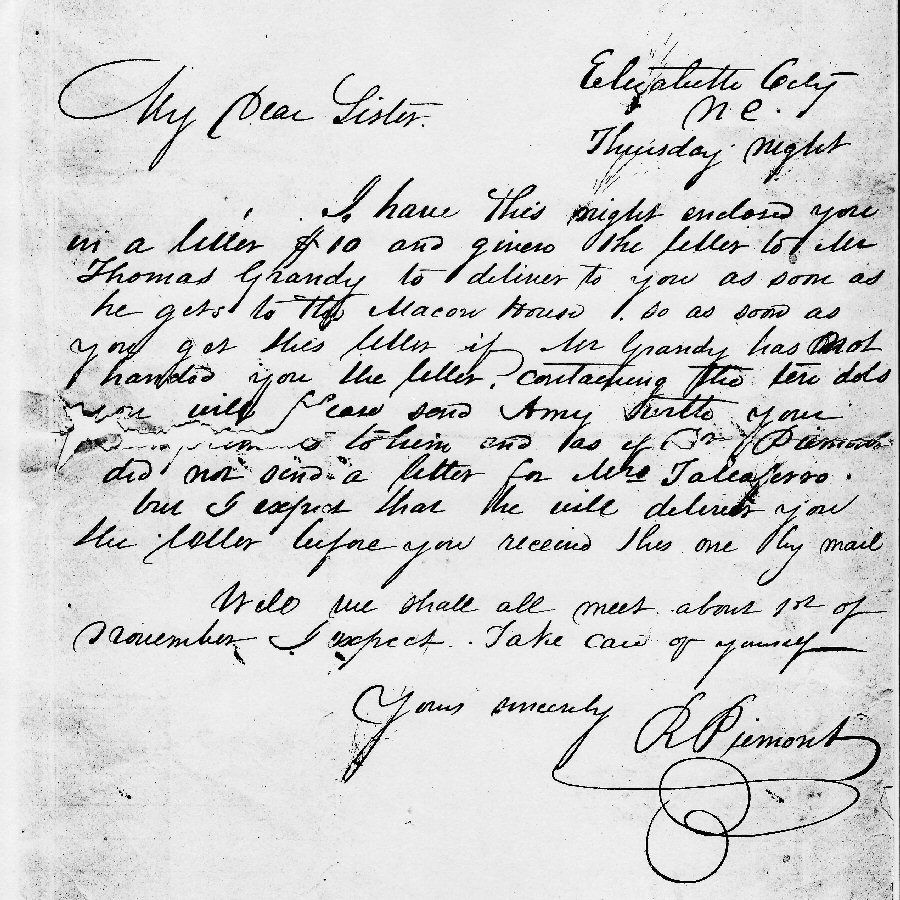 Elizabeth City
N C.
My Dear Sister.
Thursday night
I have this night enclosed you
in a letter $10 and given the letter to Mr
Thomas Grandy to deliver to you as soon as
he gets to the Macon House. so as soon as
you get this letter if Mr Grandy has not
handed you the letter, containing the ten dols
you will please send Amy your
to him and as if Dr Piemont
did not send a letter for Mrs Taleaferro.
but I expect that he will deliver you
the letter before you receive this one by mail
Well we shall all meet about 1st of
November I expect. Take care of yourself
Yours sincerely
R Piemont